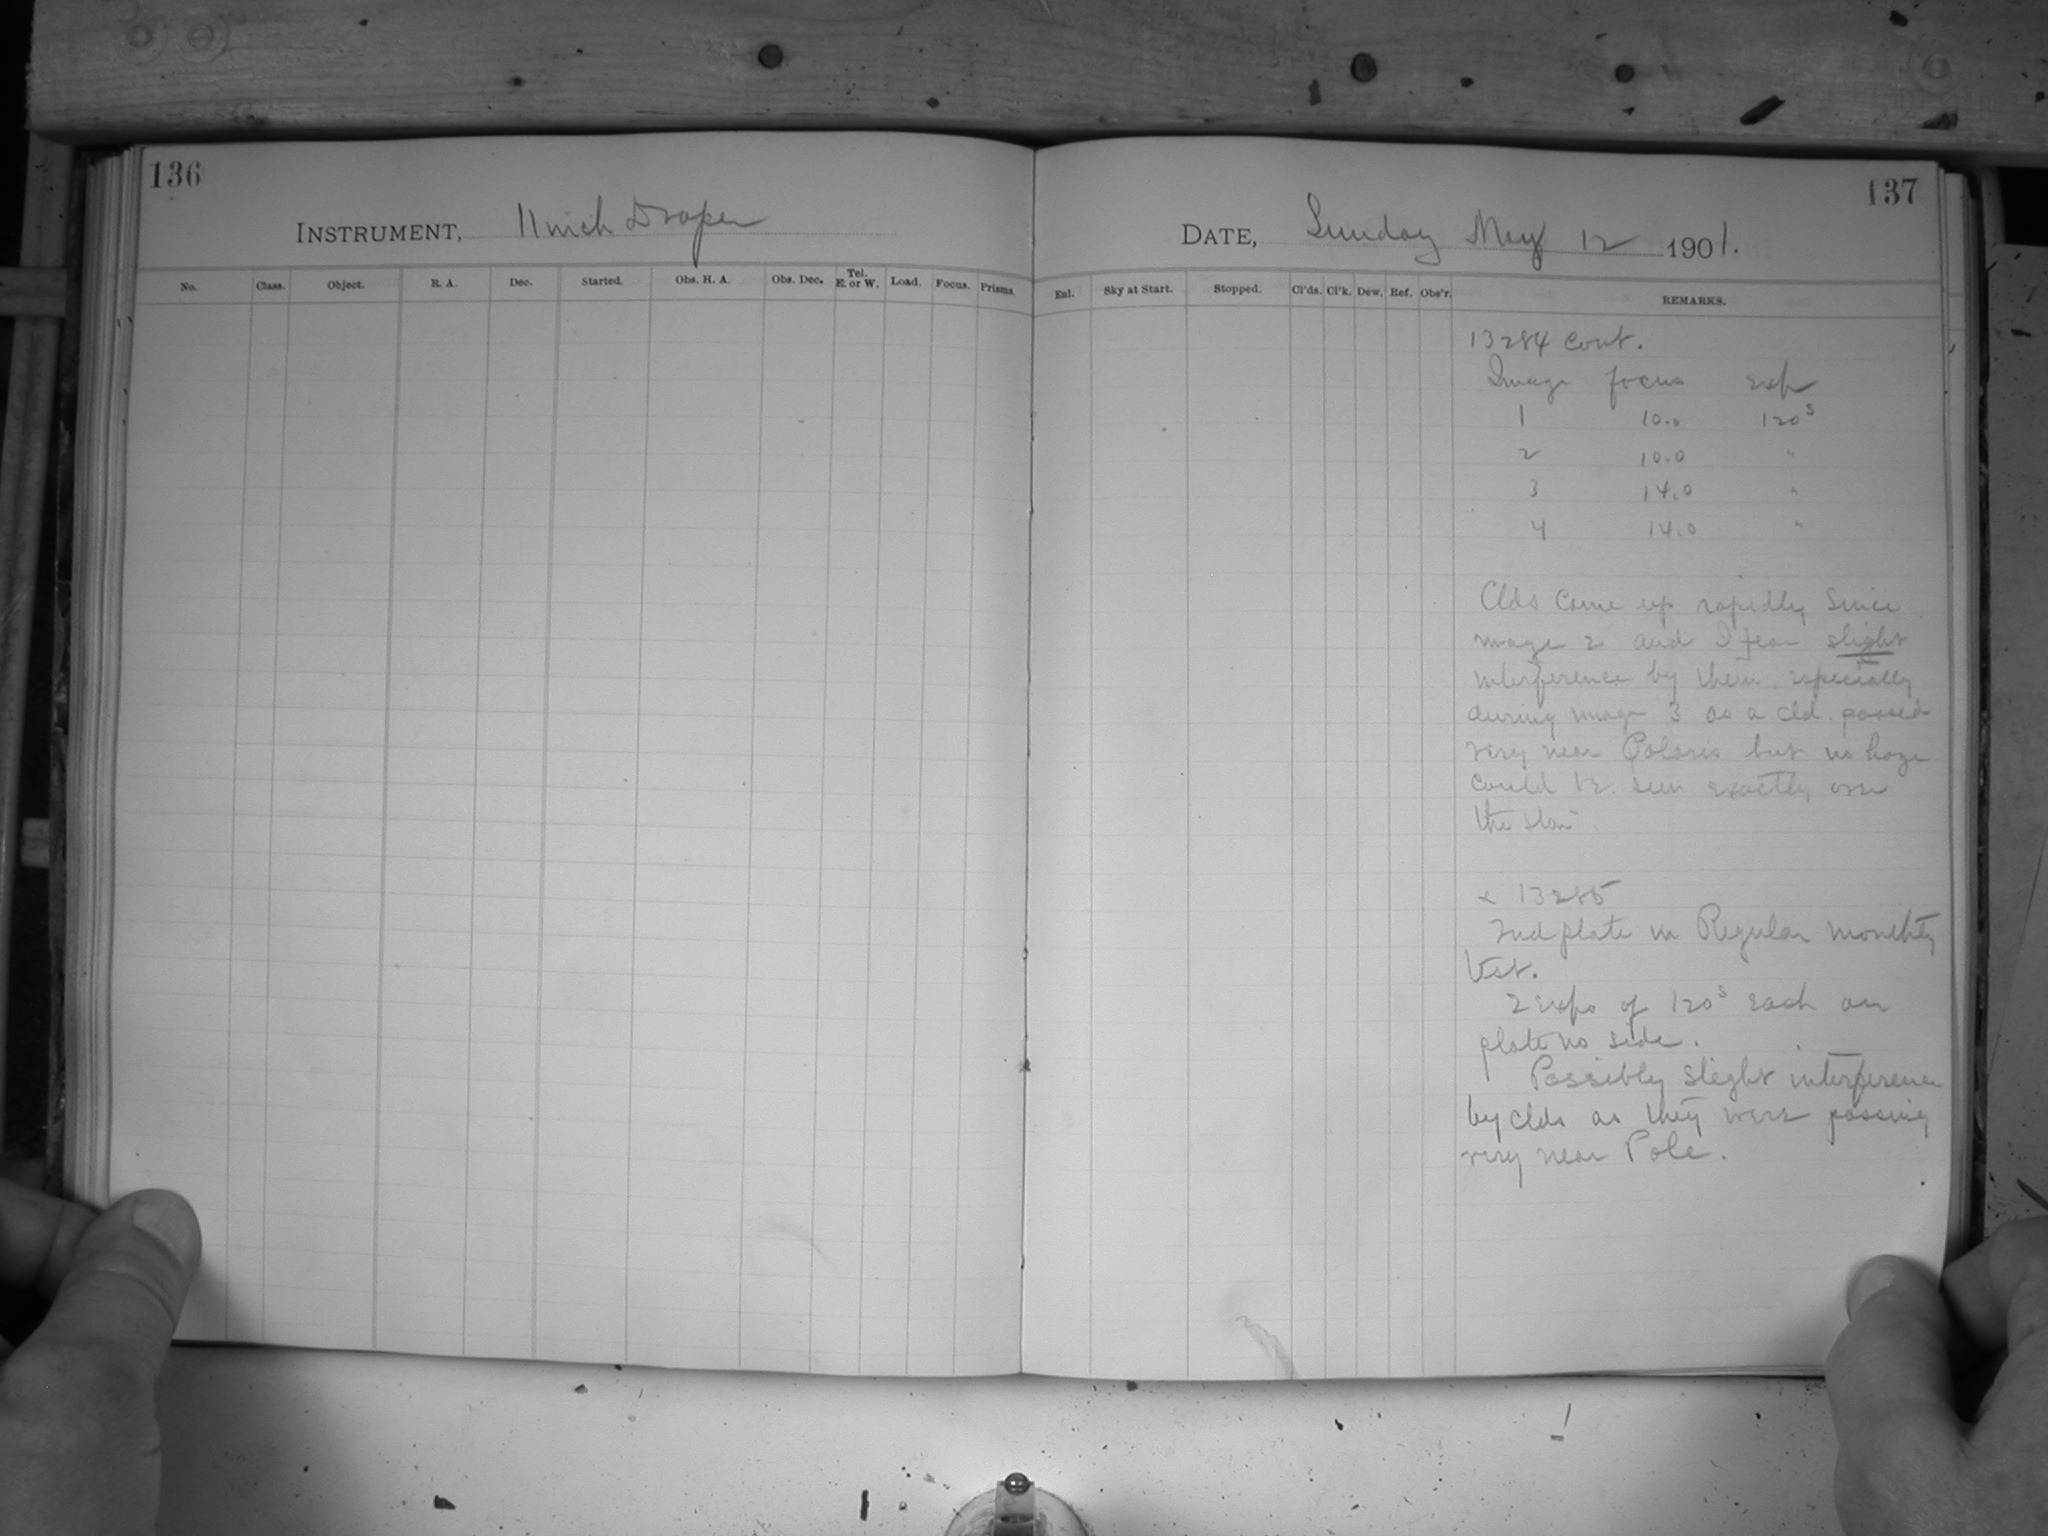 136
INSTRUMENT, 11 inch Draper
No. Class. Object. R. A. Dec. Started. Obs. H. A. Obs. Dec. Tel. E. or W. Load. Focus. Prisms.
137
DATE, Sunday May 12 1901.
Enl. Sky at Start. Stopped. Cl'ds. Cl'k. Dew. Ref. Obs'r. REMARKS.
13284 cont.
Image focus exp
1 10.0 120s
2 10.0 "
3 14.0 "
4 14.0 "
Clds came up rapidly since
image 2 and I fear slight
interference by them especially
during image 3 as a cld. passed
very near Polaris but no haze
could be seen exactly over
the star
x 13285
2nd plate in Regular monthly
test.
2 exps of 120s each on
plate no side.
Possibly slight interference
by clds as they were passing
very near Pole.